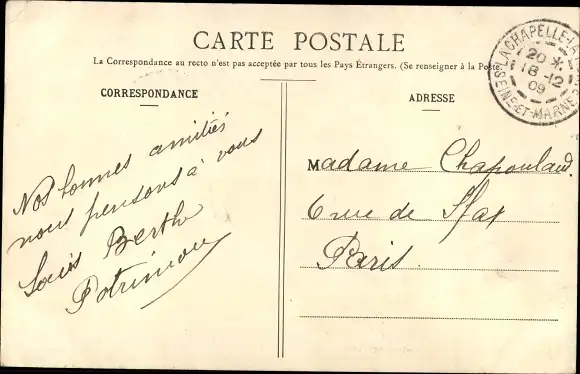 CARTE POSTALE
La Correspondance au recto n'est pas acceptée par tous les Pays Étrangers. (Se renseigner à la Poste
CORRESPONDANCE
Nos bonnes amitiés
nous pensons à vous
Louis Berthe
ADRESSE
Madame Chapouland.
6 rue de Sfax
Paris
LA CHAPELLE-LA
20 *
18-12
09
SEINE-ET-MARNE